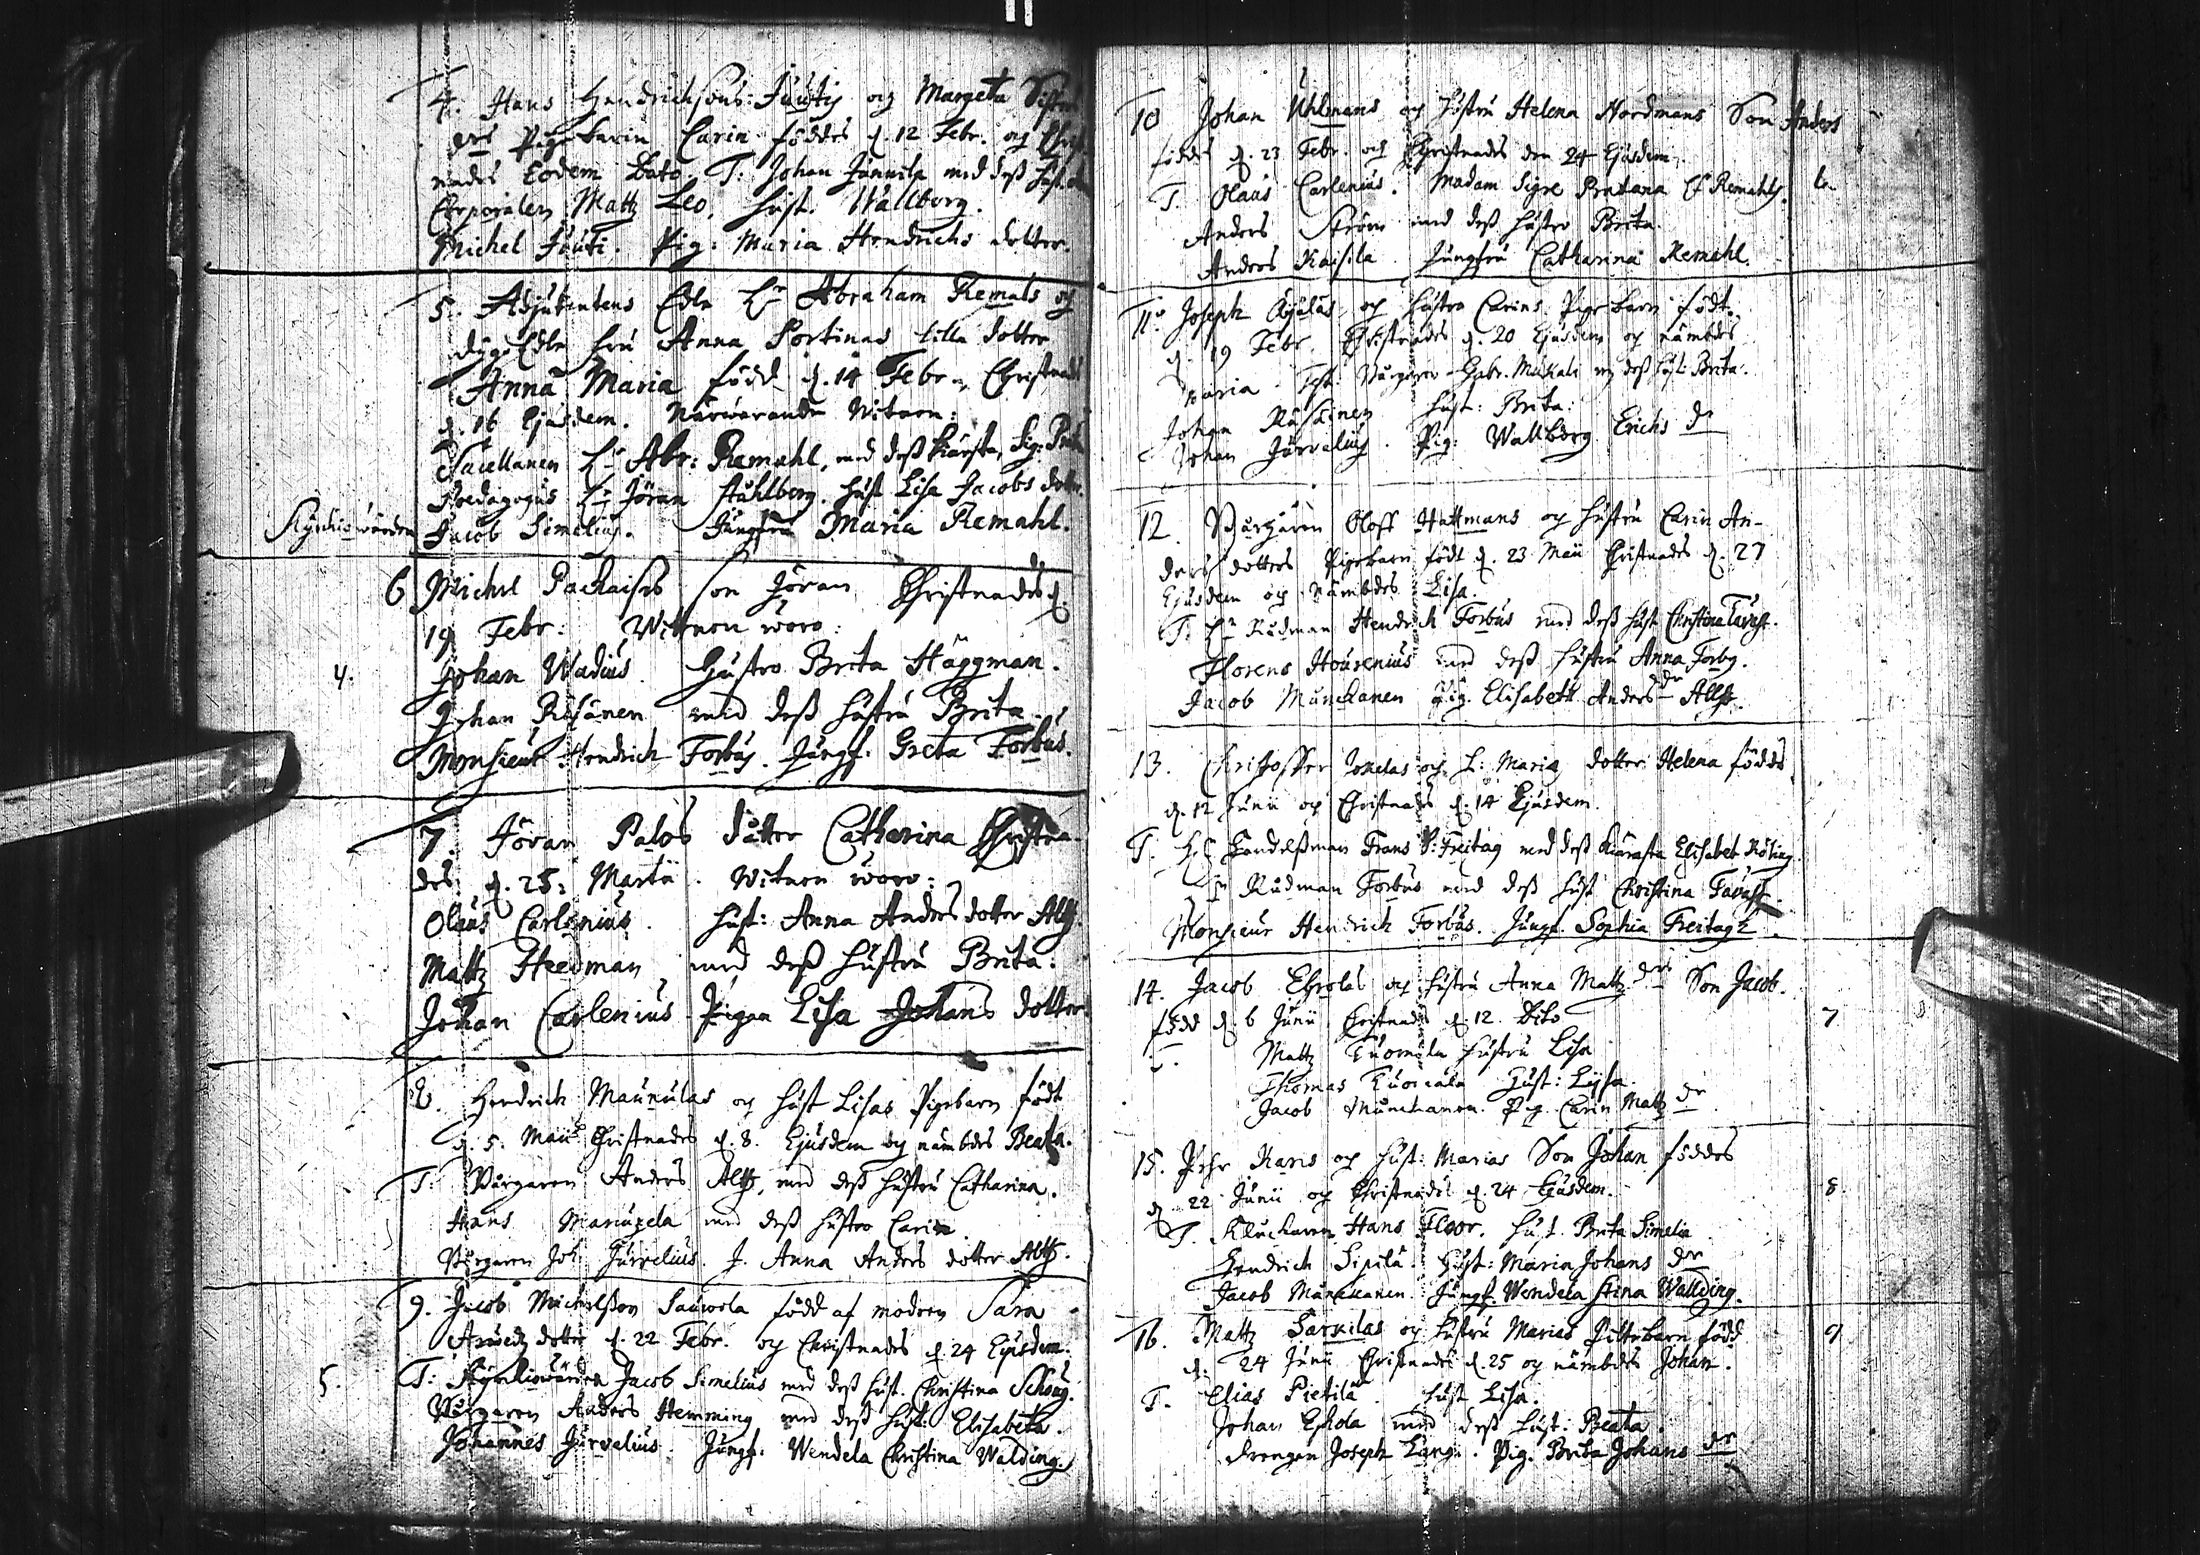 4. Hans Hendrichsons Juutis og Margeta
des Pigebarn Carin föddes d. 12 Febr. og Christ
nades Eodem Dato. T: Johan Jannila med dess hust.
Corporalen Mattz Leo. hust. Wallborg.
Michel Juuti. Pig: Maria Hendrichs dotter.
5. Adjutentens Edle Hr Abraham Remals og
dyg Edle fru Anna Portinas lilla dotter
Anna Maria född d. 14 Febr. Christnad
d. 16 Ejusdem. Närwarande Witnen:
Sacellanen Hr Abr: Remahl, med dess käresta, Sig:
Paedagogus Hr Jöran Ståhlberg. hust Lisa Jacobs dotter.
Kyrkiowärden Jacob Simelius. Jungfru Maria Remahl.
6 Michel Pachaises son Jöran Christnades d.
19 Febr: Witnen woro:
4. Johan Wadius. Hustro Brita Häggman.
Johan Räsänen med dess hustru Brita.
Monsieur Hendrich Forbus. Jungf: Greta Forbus.
7. Jöran Palos dotter Catharina Christna
des d. 25: Martii. Witnen woro:
Olaus Carlenius. hust: Anna Anders dotter Altz.
Mattz Heedman med dess hustru Brita.
Johan Carlenius Pigan Lisa Johans dotter.
8. Hendrich Maunulas og hust Lisas Pigebarn födt
d. 5. Maii Christnades d. 8. Ejusdem og nämbdes Beata.
T: Borgaren Anders Altz, med dess hustru Catharina.
Hans Mariapela med dess hustro Carin
Borgaren Joh. Jürvelius. J. Anna Anders dotter Altz.
9. Jacob Michelsson Sauvola född af modren Sara
Arwedz dotter d. 22 Febr. og Christnades d. 24 Ejusdem.
5. T: Kyrkiowärden Jacob Simelius med dess hust. Christina Schoug.
Borgaren Anders Hemming med dess hust: Elisabeta.
Johannes Jürvelius. Jungf: Wendela Christina Walding.
10 Johan Uhlmans og hustru Helena Nordmans Son Anders
föddes d. 23 Febr. og Christnades den 24 Ejusdem.
T. Olaus Carlenius. Madam Sigre Brutana Remahl. 6.
Anders Ström med dess hustro Brita.
Anders Kaisila. Jungfru Catharina Remahl.
11. Joseph og hustro Carins Pigebarn födt
d. 19 Febr. Christnades d. 20 Ejusdem og nämbdes
Maria Test: Borgaren Gabr. Mukali m dess hust: Brita.
Johan Räsäinen hust: Brita:
Johan Jürvelius. Pig: Wallborg Erichs dr
12. Borgaren Oloff Hattmans og hustru Carin An-
ders dotters Pigebarn födt d. 23 Maii Christnades d. 27
Ejusdem og nämbdes Lisa.
T: Hr Rådman Hendrich Forbus med dess hust Christina Tavast.
Florens Hourenius med dess hustru Anna Forbg.
Jacob Munckanen Pig. Elisabett Anders dr Altz.
13. Christoffer Jokelas og h: Maria dotter Helena föddes
d. 12 Junii og Christnades d. 14 Ejusdem.
T. Hr Handelsman Frans P: Freitag med dess kiärasta Elisabet Röling.
Hr Rådman Forbus med dess hust Christina Tavast.
Monsieur Hendrich Forbus. Jungf. Sophia Freitagz.
14. Jacob Eskolas og hustru Anna Mattz drs Son Jacob.
född d. 6 Junii Christnades d. 12. Dito 7
T. Mattz Tuomala hustru Lisa
Thomas Tuomala Hust: Lijsa.
Jacob Munckanen. Pig. Carin Mattz dr
15. Pehr Karis og hust: Marias Son Johan föddes
d. 22 Junii og Christnades d. 24 Ejusdem. 8.
T. Kluckaren Hans Floor. hust. Brita Simelia
Hendrich Sipilä. Hust: Maria Johans dr
Jacob Munckanen. Jungf. Wendela Stina Wallding.
16. Mattz Sarkilas og hustru Marias Pilttebarn född 9
d. 24 Junii Christnades d. 25 og nämbdes Johan.
T. Elias Pietilä hust Lisa.
Johan Eskola med dess hust: Beata.
drengen Joseph Lang. Pig. Brita Johans dr